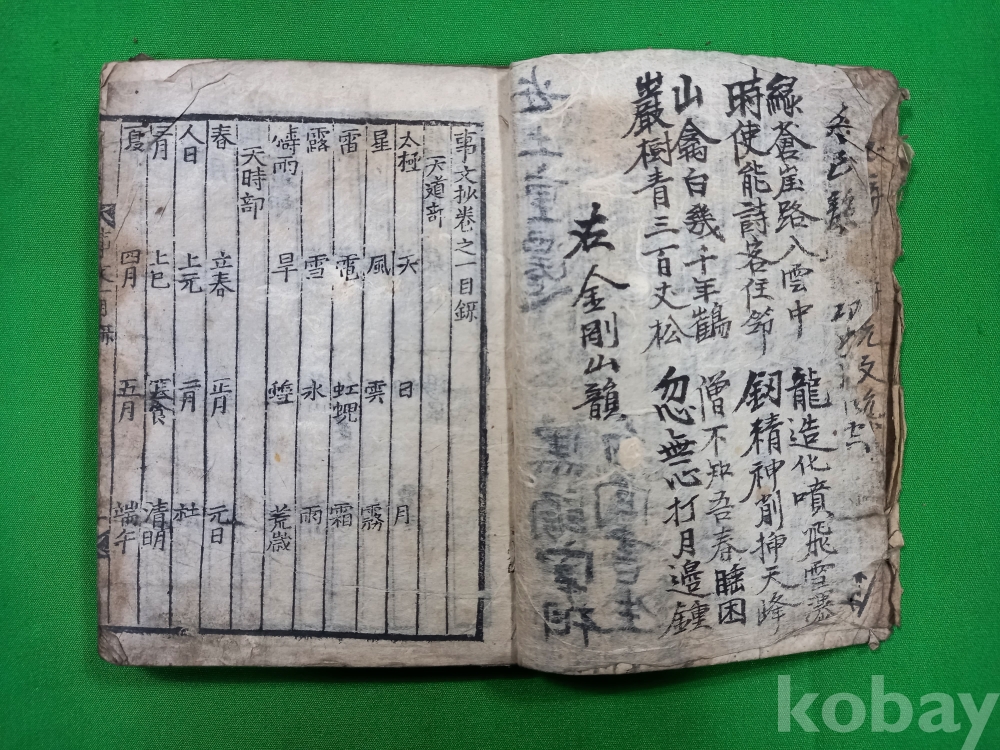 緣蒼崖路入雲中 龍造化噴飛雪瀑
時使能詩客住筇 釼精神削揷天峰
山禽白幾千年鶴 僧不知吾春睡困
巖樹青三百丈松 忽無心打月邊鍾
右金剛山韻
事文抄卷之一目錄
天道部
太極 天 日 月
星 風 雲 霧
雷 電 虹蜺 霜
露 雪 氷 雨
禱雨 旱 蝗 荒歲
天時部
春 立春 正月 元日
人日 上元 二月 社
三月 上巳 寒食 清明
夏 四月 五月 端午
kobay